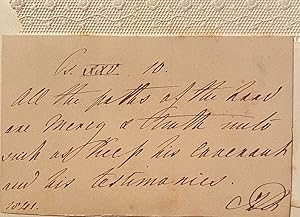 Ps. XXV. 10.
All the paths of the Lord
are Mercy & truth unto
such as keep his Covenant
and his testimonies.
1841.